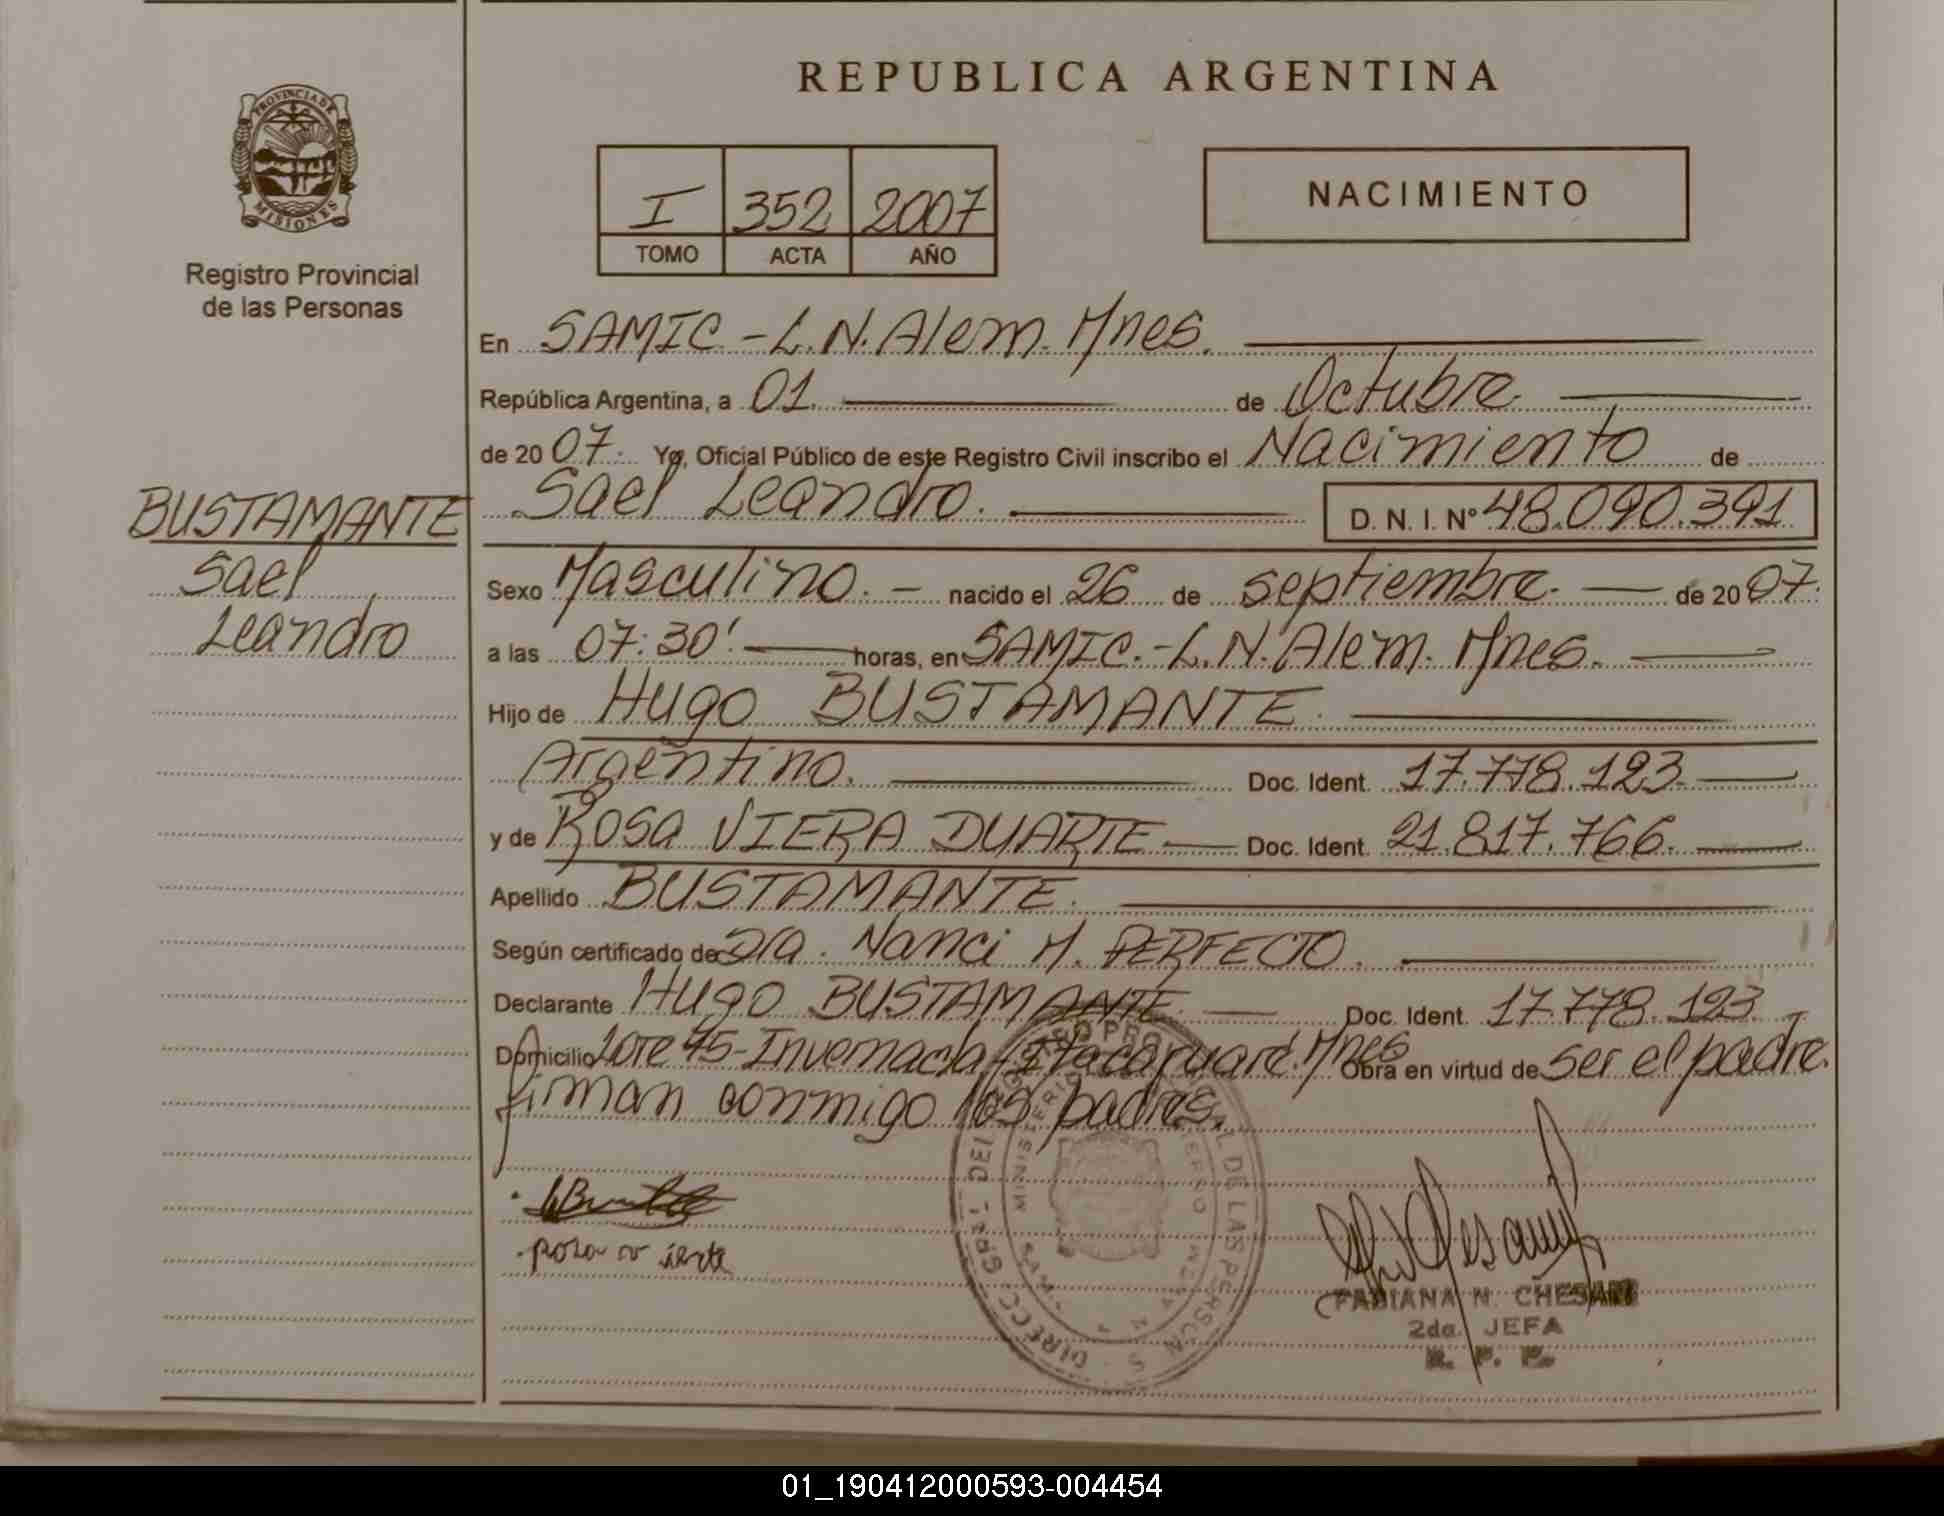 REPUBLICA ARGENTINA
PROVINCIA DE MISIONES
Registro Provincial
de las Personas
I 352 2007
TOMO ACTA AÑO
NACIMIENTO
En SAMIC-L.N.Alem. Mnes.
República Argentina, a 01. de Octubre.
de 20 07. Yo, Oficial Público de este Registro Civil inscribo el Nacimiento de
Sael Leandro. D. N. I. Nº 48.090.391.
BUSTAMANTE
Sael
Leandro
Sexo Masculino. nacido el 26 de septiembre. de 20 07.
a las 07:30' horas, en SAMIC.-L.N.Alem. Mnes.
Hijo de Hugo BUSTAMANTE.
Argentino. Doc. Ident. 17.778.123.
y de Rosa VIERA DUARTE Doc. Ident. 21.817.766.
Apellido BUSTAMANTE.
Según certificado de Dra. Nanci M. PERFECTO.
Declarante Hugo BUSTAMANTE. Doc. Ident. 17.778.123.
Domicilio Lote 45-Invernada-Itacaruaré. Mnes Obra en virtud de Ser el padre.
firman conmigo los padres.
FABIANA N. CHESANI
2da. JEFA
R. P. P.
01_190412000593-004454